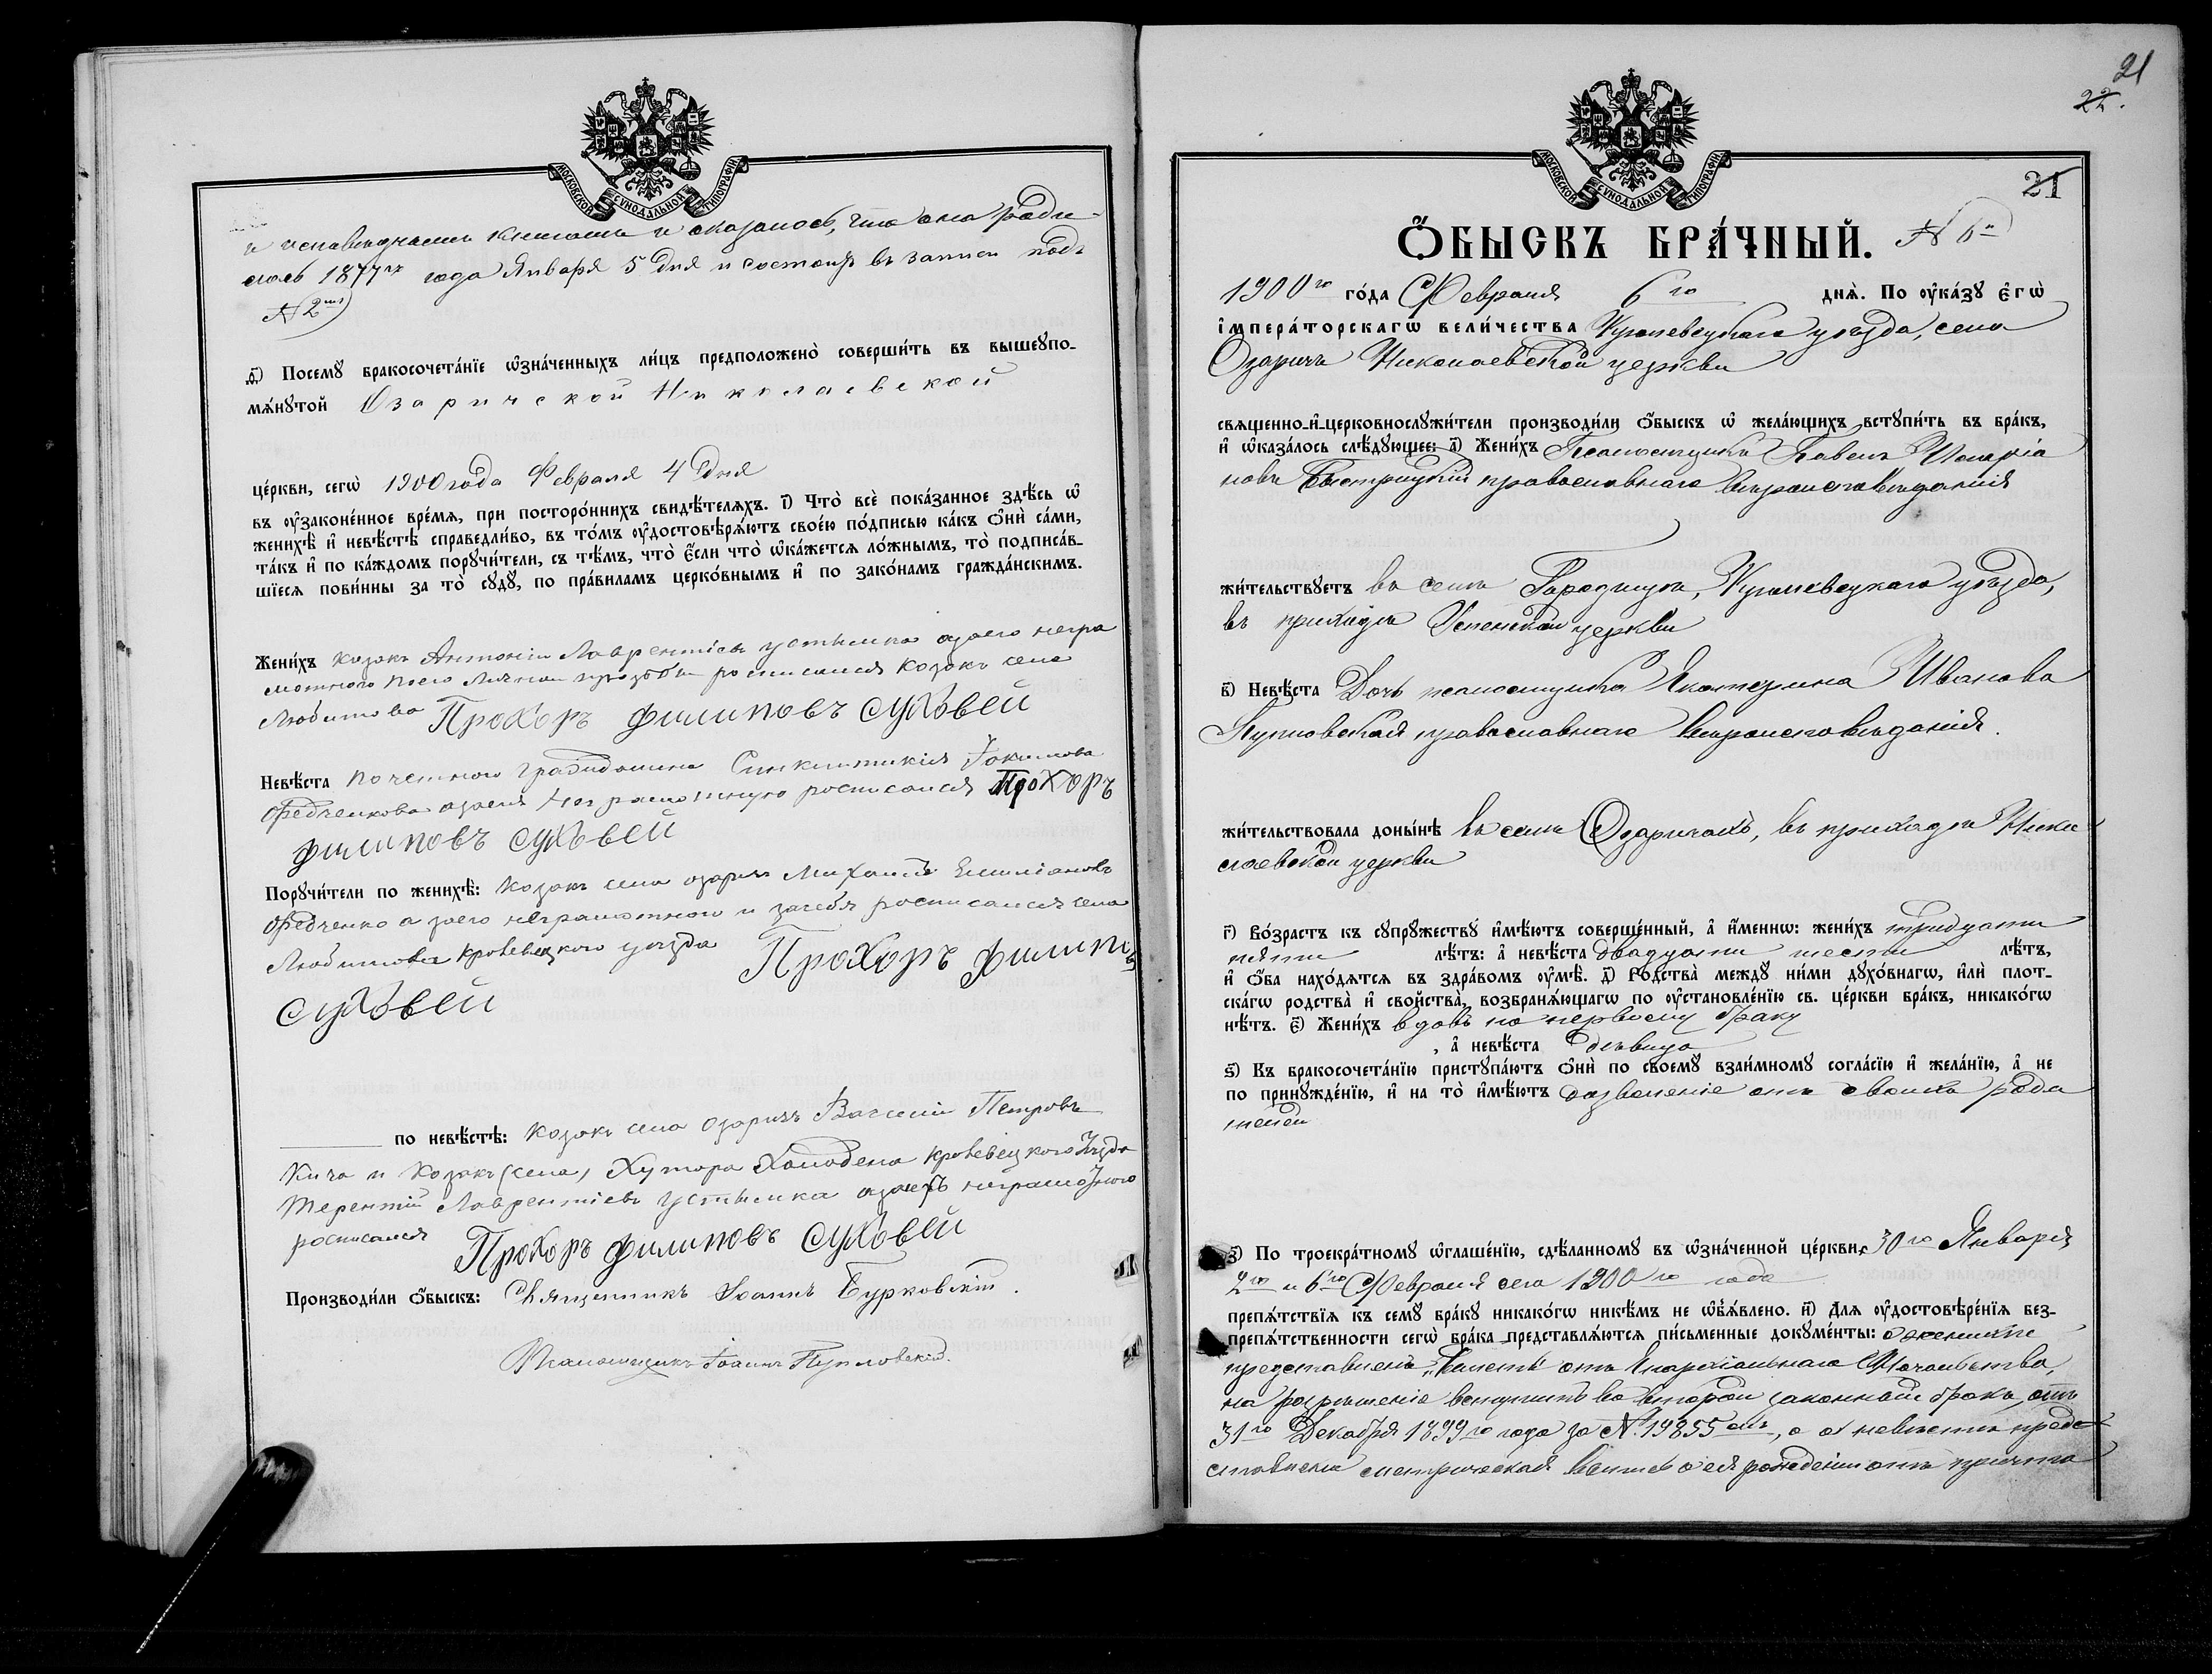 МОСКОВСКОЙ СУНОДАЛЬНОЙ ТИПОГРАФІИ
и исповѣднымъ книгамъ и оказалось, что она роди-
лась 1877го года Января 5 дня и состоитъ въ записи подъ
№ 2мъ
д҃і) Посемꙋ бракосочета́нїе ѡзна́ченныхъ ли́цъ предположено̀ соверши́ть въ вышеꙋпо-
мѧ́нꙋтой Озаричской Николаевской
це́ркви, сегѡ̀ 1900 года Февраля 4 дня
въ ᲂу҆законе́нное вре́мѧ, при посторо́ннихъ свидѣ́телѧхъ. і҃) Что̀ всѐ пока́занное здѣ́сь ѡ҆
женихѣ̀ и҆ невѣ́стѣ справедли́во, въ то́мъ ᲂу҆достовѣрѧ́ютъ свое́ю по́дписью ка́къ ѻ҆нѝ са́ми,
та́къ и҆ по ка́ждомъ порꙋчи́тели, съ тѣ́мъ, что̀ є҆́сли что̀ ѡ҆ка́жетсѧ ло́жнымъ, то̀ подписа́в-
шїесѧ пови́нны за то̀ сꙋдꙋ̀, по пра́виламъ церко́внымъ и҆ по зако́намъ гражда́нскимъ.
Жени́хъ козакъ Антоній Лаврентіевъ Устименко а за его негра
мотного по его личной прозьби росписался козакъ села
Любитова Прохоръ Филиповъ Суховей
Невѣ́ста почетного гражданина Синклитикія Іокимова
Федченкова а за ея неграмотную росписался Прохоръ
Филиповъ Суховей
Порꙋчи́тели по женихѣ̀: козакъ села озаричъ Михаилъ Емиліановъ
Федченко а за его неграмотного и за себя росписался села
Любитова Кролевецкого уезда Прохоръ Филиповъ
Суховей
по невѣ́стѣ: козакъ села озаричъ Василій Петровъ
Кича и козакъ (села) Хутора Холодена Кролевецкого Уезда
Терентій Лаврентіевъ Устименка а за ихъ неграмотного
росписался Прохоръ Филиповъ Суховей
Производи́ли ѻ҆́быскъ: Священникъ Іоаннъ Бурковскій.
Псаломщикъ Іоаннъ Пупловскій.
21
22.
МОСКОВСКОЙ СУНОДАЛЬНОЙ ТИПОГРАФІИ
21
Ѻ҆́БЫСКЪ БРА́ЧНЫЙ. № 6й
1900го го́да Февраля 6го днѧ̀. По ᲂу҆ка́зꙋ є҆гѡ̀
і҆мпера́торскагѡ вели́чества Кролевецкаго уѣзда, села
Озаричъ Николаевской церкви
свѧщенно-и҆-церковнослꙋжи́тели производи́ли ѻ҆́быскъ ѡ҆ жела́ющихъ встꙋпи́ть въ бра́къ,
и҆ ѡ҆каза́лось слѣ́дꙋющее: а҃) Жени́хъ Псаломщикъ Павелъ Иларіа
новъ Быстрицкій православнаго вѣроисповѣданія
жи́тельствꙋетъ въ селѣ Городищѣ, Кролевецкаго уѣзда,
въ приходѣ Успенской церкви
в҃) Невѣ́ста Дочь псаломщика Екатерина Иванова
Пупловская православнаго вѣроисповѣданія.
жи́тельствовала доны́нѣ въ селѣ Озаричахъ, въ приходѣ Нико
лаевской церкви
г҃) Во́зрастъ къ сꙋпрꙋжествꙋ̀ и҆мѣ́ютъ соверше́нный, а҆ и҆́меннѡ: жени́хъ тридцати
пяти лѣ́тъ: а҆ невѣ́ста двадцати шести лѣ́тъ,
и҆ ѻ҆́ба нахо́дѧтсѧ въ здра́вомъ ᲂу҆мѣ̀. д҃) Родства̀ междꙋ̀ ни́ми дꙋхо́внагѡ, и҆лѝ плот-
ска́гѡ родства̀ и҆ свойства̀, возбранѧ́ющагѡ по ᲂу҆становле́нїю св. це́ркви бра́къ, никако́гѡ
нѣ́тъ. є҃) Жени́хъ вдовъ по первому браку
, а҆ невѣ́ста дѣвица
ѕ҃) Къ бракосочета́нїю пристꙋпа́ютъ ѻ҆нѝ по своемꙋ̀ взаи́мномꙋ согла́сїю и҆ жела́нїю, а҆ не
по принꙋжде́нїю, и҆ на то̀ и҆мѣ́ютъ дозволеніе отъ своихъ роди
телей
з҃) По троекра́тномꙋ ѡ҆глаше́нїю, сдѣ́ланномꙋ въ ѡ҆зна́ченной це́ркви, 30го Января
2го и 6го Февраля сего 1900го года
препѧ́тствїѧ къ семꙋ̀ бра́кꙋ никако́гѡ никѣ́мъ не ѡ҆б̾ѧ́влено. и҃) Длѧ ᲂу҆достовѣре́нїѧ без-
препѧ́тственности сегѡ̀ бра́ка представлѧ́ютсѧ пи́сьменные докꙋме́нты: о женихѣ
представленъ „билетъ“ отъ Епархіальнаго Начальства,
на разрѣшеніе вступить во второй законный бракъ, отъ
31го Декабря 1899го года за № 19855мъ, а о невѣстѣ пред-
ставлена метрическая выпись о ея рожденіи отъ причта